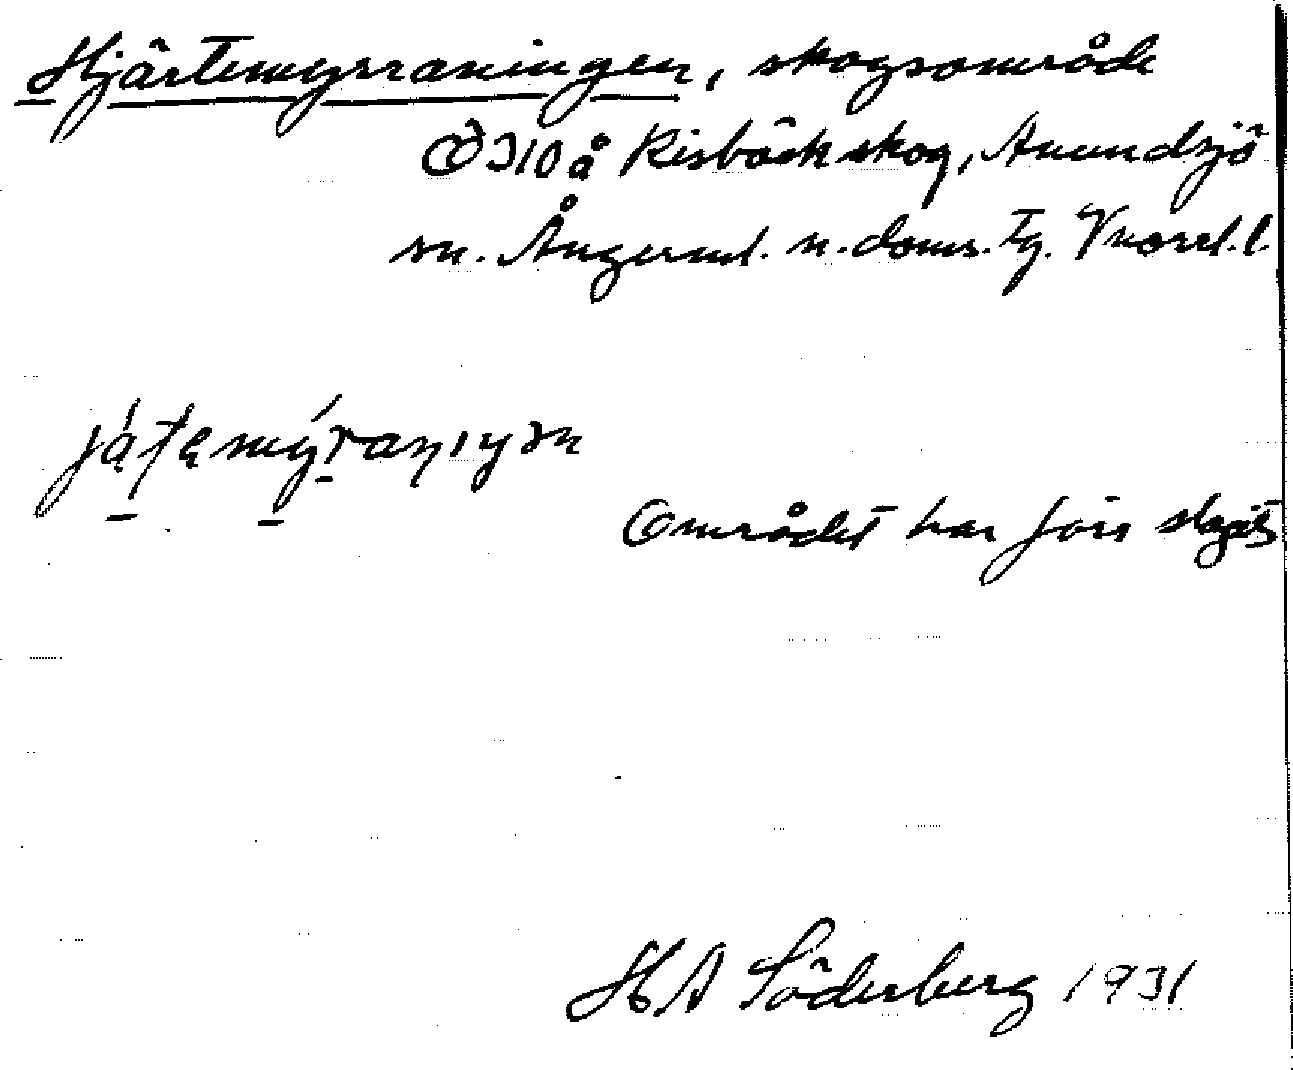 Hjärtemyrraningen, skogsområde
Ö 310 å Risbäck skog, Anundsjö
sn. Ångerml. n. doms. tg. Vnorrl. l.
Området har förr slagits
H A Söderberg 1931